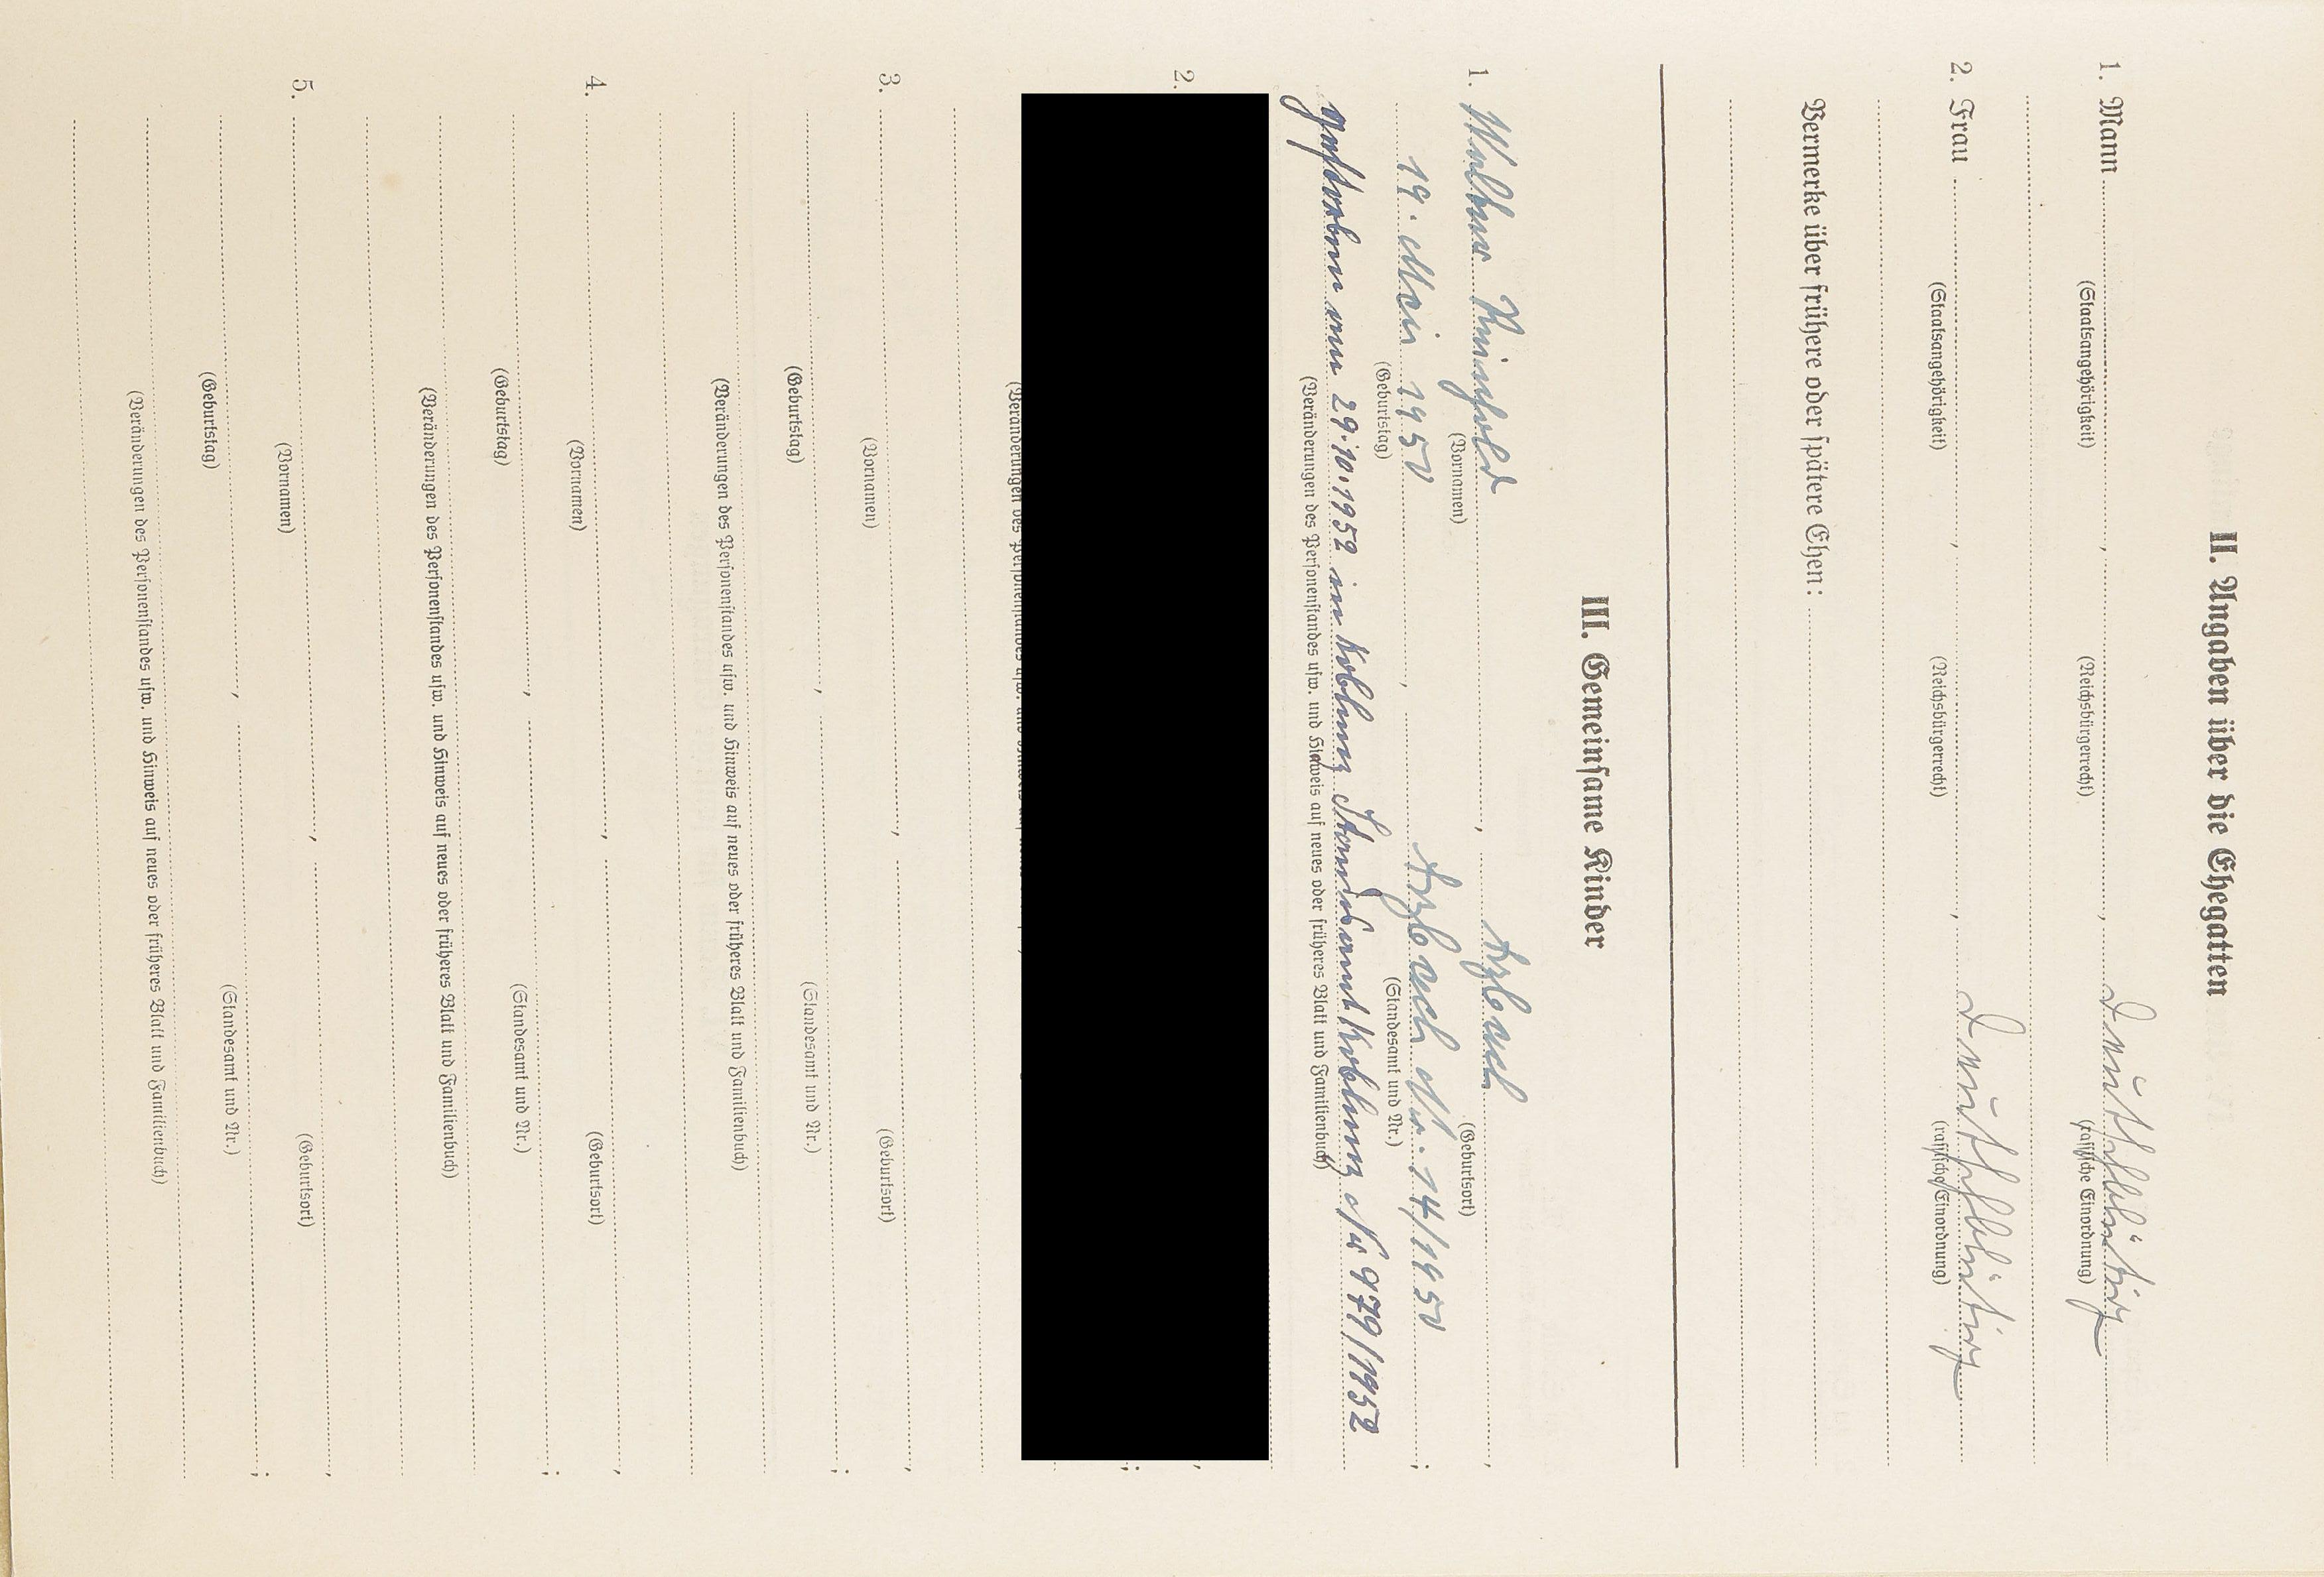 II. Angaben über die Ehegatten
1. Mann , , deutschblütig
(Staatsangehörigkeit) (Reichsbürgerrecht) (rassische Einordnung)
2. Frau , , deutschblütig
(Staatsangehörigkeit) (Reichsbürgerrecht) (rassische Einordnung)
Vermerke über frühere oder spätere Ehen:
III. Gemeinsame Kinder
1. Reinhold , Arzbach ,
(Vornamen) (Geburtsort)
19. Mai 1950 , Arzbach Nr. 14/1950 ;
(Geburtstag) (Standesamt und Nr.)
gestorben am 29.10.1952 in Koblenz Standesamt Koblenz Nr 979/1952
(Veränderungen des Personenstandes usw. und Hinweis auf neues oder früheres Blatt und Familienbuch)
2.
3. , ,
(Vornamen) (Geburtsort)
, ;
(Geburtstag) (Standesamt und Nr.)
(Veränderungen des Personenstandes usw. und Hinweis auf neues oder früheres Blatt und Familienbuch)
4. , ,
(Vornamen) (Geburtsort)
, ;
(Geburtstag) (Standesamt und Nr.)
(Veränderungen des Personenstandes usw. und Hinweis auf neues oder früheres Blatt und Familienbuch)
5. , ,
(Vornamen) (Geburtsort)
, ;
(Geburtstag) (Standesamt und Nr.)
(Veränderungen des Personenstandes usw. und Hinweis auf neues oder früheres Blatt und Familienbuch)